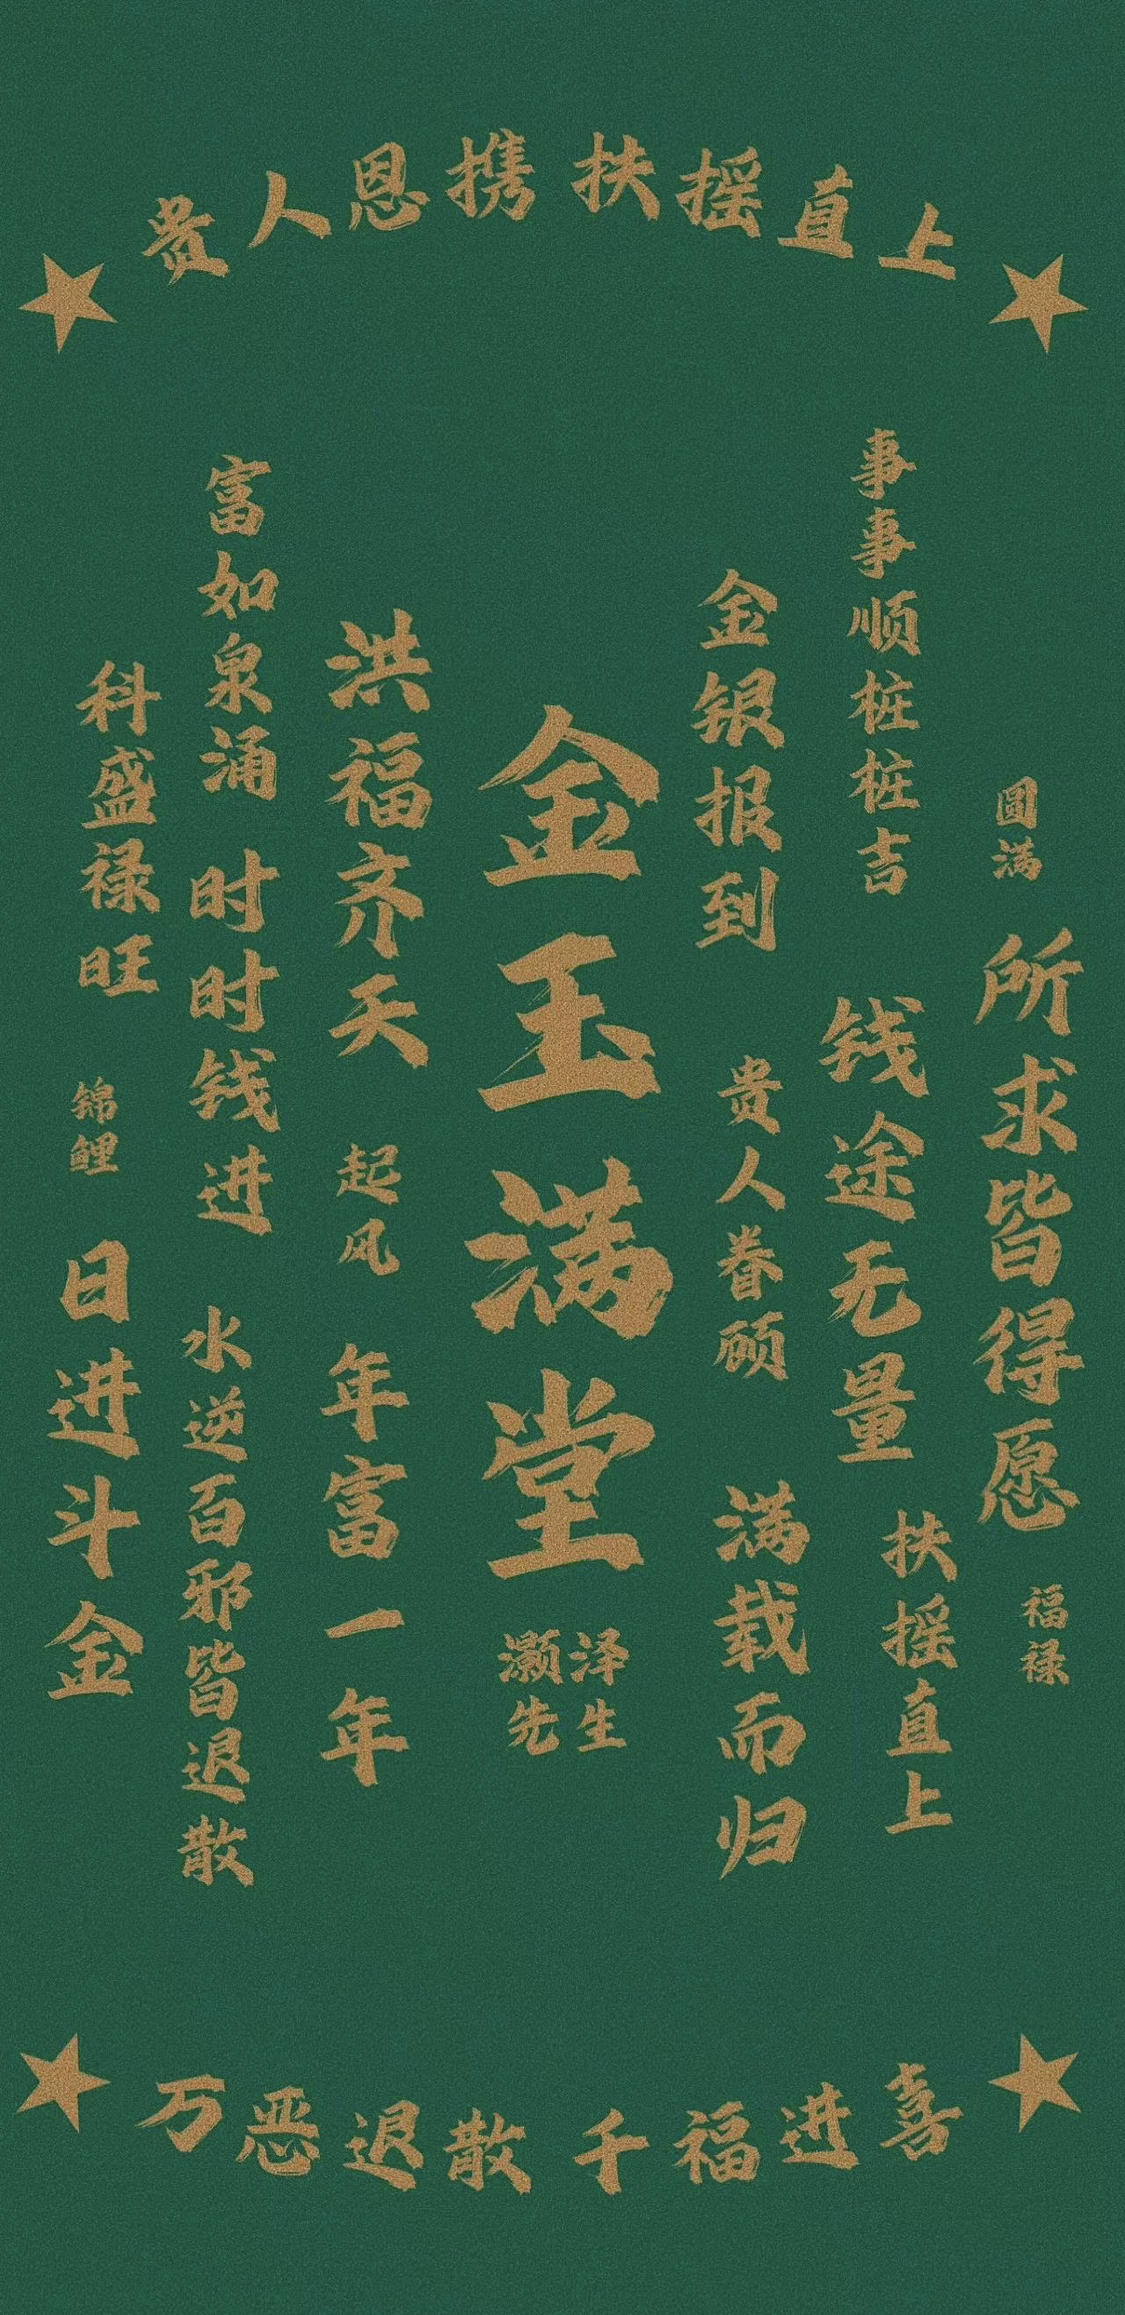 贵人恩携 扶摇直上
圆满 所求皆得愿 福禄
事事顺桩桩吉 钱途无量 扶摇直上
金银报到 贵人眷顾 满载而归
金玉满堂
泽生
灏先
洪福齐天 起风 年富一年
富如泉涌 时时钱进 水逆百邪皆退散
科盛禄旺 锦鲤 日进斗金
万恶退散 千福进喜